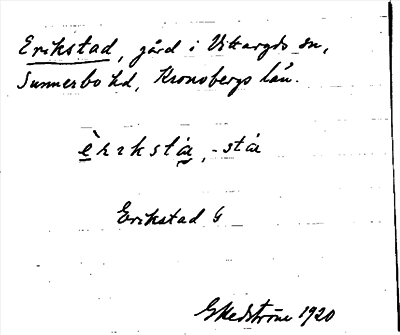 Erikstad, gård i Vittaryds sn,
Sunnerbo hd, Kronobergs län.
èrıkstá, -stá
Erikstad G
G Hedström 1920